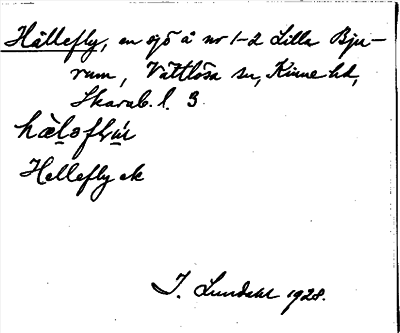 Hällefly, en sjö å nr 1-2 Lilla Bju-
rum, Vättlösa sn, Kinne hd,
Skarab. l. 3
Hellefly ek
I. Lundahl 1928.